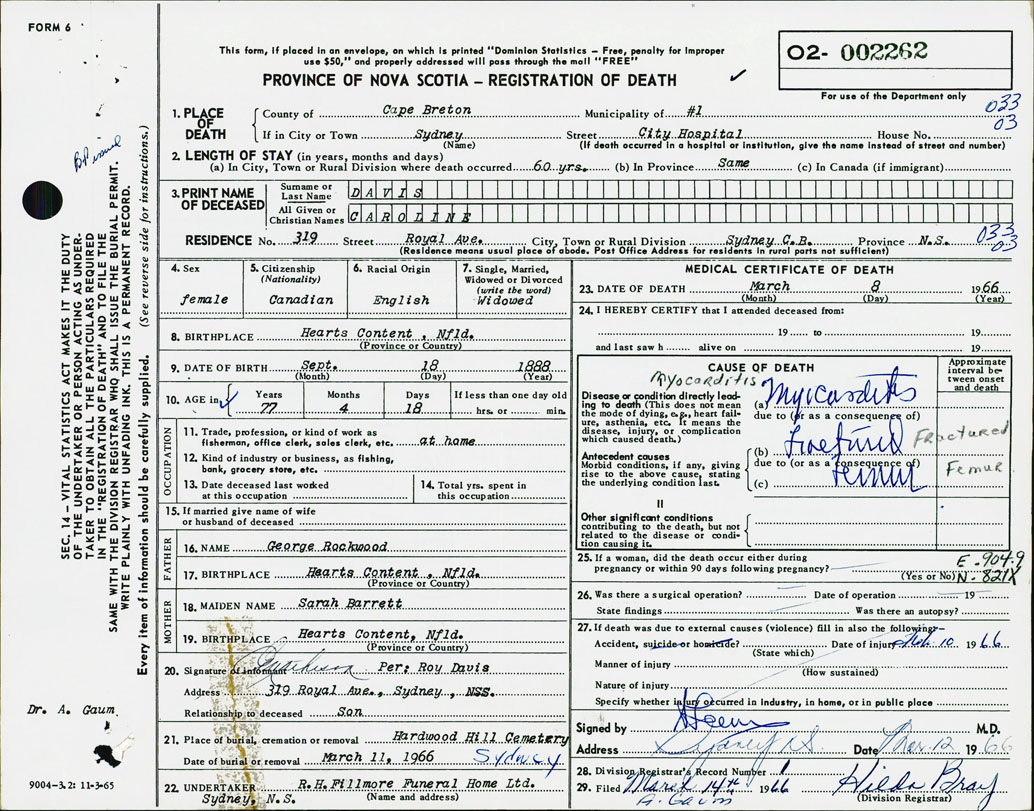 FORM 6
This form, if placed in an envelope, on which is printed "Dominion Statistics – Free, penalty for improper
use $50," and properly addressed will pass through the mail "FREE"
PROVINCE OF NOVA SCOTIA – REGISTRATION OF DEATH
02- 002262
For use of the Department only
033
03
1. PLACE OF DEATH
County of Cape Breton Municipality of #1
If in City or Town Sydney Street City Hospital House No.
(Name) (If death occurred in a hospital or institution, give the name instead of street and number)
2. LENGTH OF STAY (in years, months and days)
(a) In City, Town or Rural Division where death occurred 60 yrs. (b) In Province Same (c) In Canada (if immigrant)
3. PRINT NAME OF DECEASED
Surname or Last Name DAVIS
All Given or Christian Names CAROLINE
RESIDENCE No. 319 Street Royal Ave. City, Town or Rural Division Sydney C.B. Province N.S. 033 03
(Residence means usual place of abode. Post Office Address for residents in rural parts not sufficient)
4. Sex
female
5. Citizenship
(Nationality)
Canadian
6. Racial Origin
English
7. Single, Married,
Widowed or Divorced
(write the word)
Widowed
8. BIRTHPLACE Hearts Content , Nfld.
(Province or Country)
9. DATE OF BIRTH Sept. 18 1888
(Month) (Day) (Year)
10. AGE in Years Months Days If less than one day old
77 4 18 hrs. or min.
OCCUPATION
11. Trade, profession, or kind of work as
fisherman, office clerk, sales clerk, etc. at home
12. Kind of industry or business, as fishing,
bank, grocery store, etc.
13. Date deceased last worked
at this occupation
14. Total yrs. spent in
this occupation
15. If married give name of wife
or husband of deceased
FATHER
16. NAME George Rockwood
17. BIRTHPLACE Hearts Content , Nfld.
(Province or Country)
MOTHER
18. MAIDEN NAME Sarah Barrett
19. BIRTHPLACE Hearts Content, Nfld.
(Province or Country)
20. Signature of informant Per: Roy Davis
Address 319 Royal Ave., Sydney , NSS.
Relationship to deceased Son
21. Place of burial, cremation or removal Hardwood Hill Cemetery
Date of burial or removal March 11, 1966 Sydney
22. UNDERTAKER R.H.Fillmore Funeral Home Ltd.
Sydney, N.S. (Name and address)
MEDICAL CERTIFICATE OF DEATH
23. DATE OF DEATH March 8 1966
(Month) (Day) (Year)
24. I HEREBY CERTIFY that I attended deceased from:
19 to 19
and last saw h alive on 19
CAUSE OF DEATH
Approximate
interval be-
tween onset
and death
Myocarditis
Disease or condition directly lead-
ing to death (This does not mean
the mode of dying, e.g., heart fail-
ure, asthenia, etc. It means the
disease, injury, or complication
which caused death.)
(a) Myocarditis
due to (or as a consequence of)
Antecedent causes
Morbid conditions, if any, giving
rise to the above cause, stating
the underlying condition last.
(b) Fractured Fractured
due to (or as a consequence of)
(c) Femur Femur
II
Other significant conditions
contributing to the death, but not
related to the disease or condi-
tion causing it.
25. If a woman, did the death occur either during
pregnancy or within 90 days following pregnancy?
(Yes or No)
E-904.9
N-821X
26. Was there a surgical operation? Date of operation 19
State findings Was there an autopsy?
27. If death was due to external causes (violence) fill in also the following:
Accident, suicide or homicide? Date of injury Feb 10 1966
(State which)
Manner of injury
(How sustained)
Nature of injury
Specify whether injury occurred in industry, in home, or in public place
Signed by M.D.
Address Sydney N.S. Date Mar. 12 1966
28. Division Registrar's Record Number
29. Filed March 14th 1966 Hilda Bray
A. Gaum (Division Registrar)
SEC. 14 – VITAL STATISTICS ACT MAKES IT THE DUTY
OF THE UNDERTAKER OR PERSON ACTING AS UNDER-
TAKER TO OBTAIN ALL THE PARTICULARS REQUIRED
IN THE "REGISTRATION OF DEATH" AND TO FILE THE
SAME WITH THE DIVISION REGISTRAR WHO SHALL ISSUE THE BURIAL PERMIT.
WRITE PLAINLY WITH UNFADING INK. THIS IS A PERMANENT RECORD.
Every item of information should be carefully supplied. (See reverse side for instructions.)
Dr. A. Gaum
9004-3.2: 11-3-65